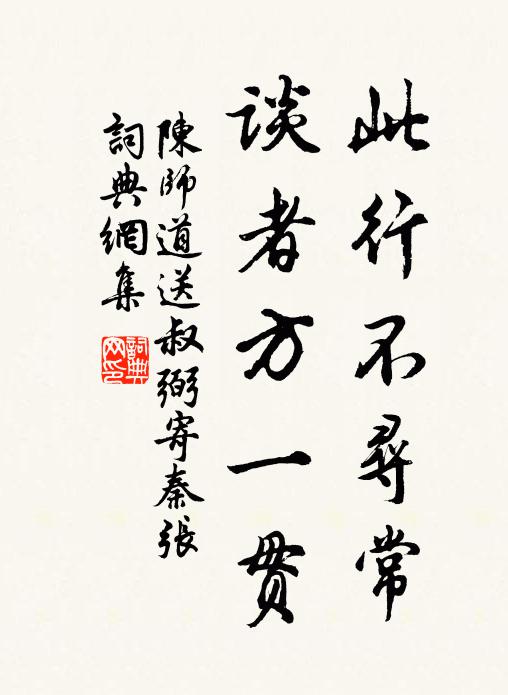 此行不尋常
談者方一貫
陳師道送叔弼寄秦張
詞典網集
詞典網印